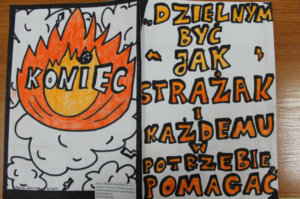 KONIEC
...DZIELNYM
BYĆ
JAK
STRAŻAK
I
KAŻDEMU
W
POTRZEBIE
POMAGAĆ